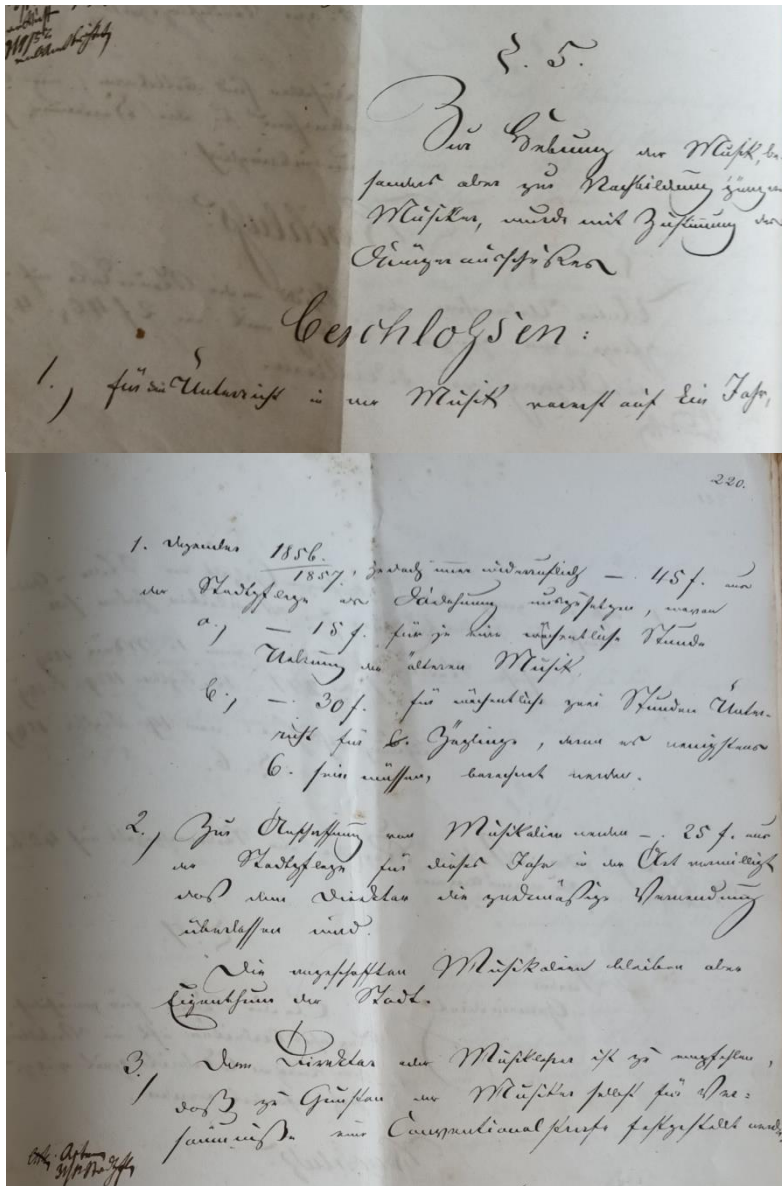 §. 5.
Zur Hebung der Musik, be-
sonders aber zur Nachbildung junger
Musiker, wurde mit Zustimmung des
Bürgerausschußes
beschloßsen:
1., für den Unterricht in der Musik vorerst auf Ein Jahr,
220.
1. Dezember 1856.
1857, jedoch immer widerruflich — . 45 f. aus
der Stadtpflege als Belohnung auszusetzen, wovon
a., — 15 f. für je eine wöchentliche Stunde
Uebung der älteren Musik,
b., — . 30 f. für wöchentlich zwei Stunden Unter-
richt für 6. Zöglinge, deren es wenigstens
6. sein müssen, berechnet werden.
2., Zur Anschaffung von Musikalien werden — . 25 f. aus
der Stadtpflege für dieses Jahr in der Art verwilligt
daß dem Direktor die zwekmäßige Verwendung
überlassen wird.
Die angeschafften Musikalien bleiben aber
Eigenthum der Stadt.
3., Dem Direktor oder Musiklehrer ist zu empfehlen,
daß zu Gunsten der Musiker selbst für Ver=
säumniße eine Conventionalstrafe festgestellt werde